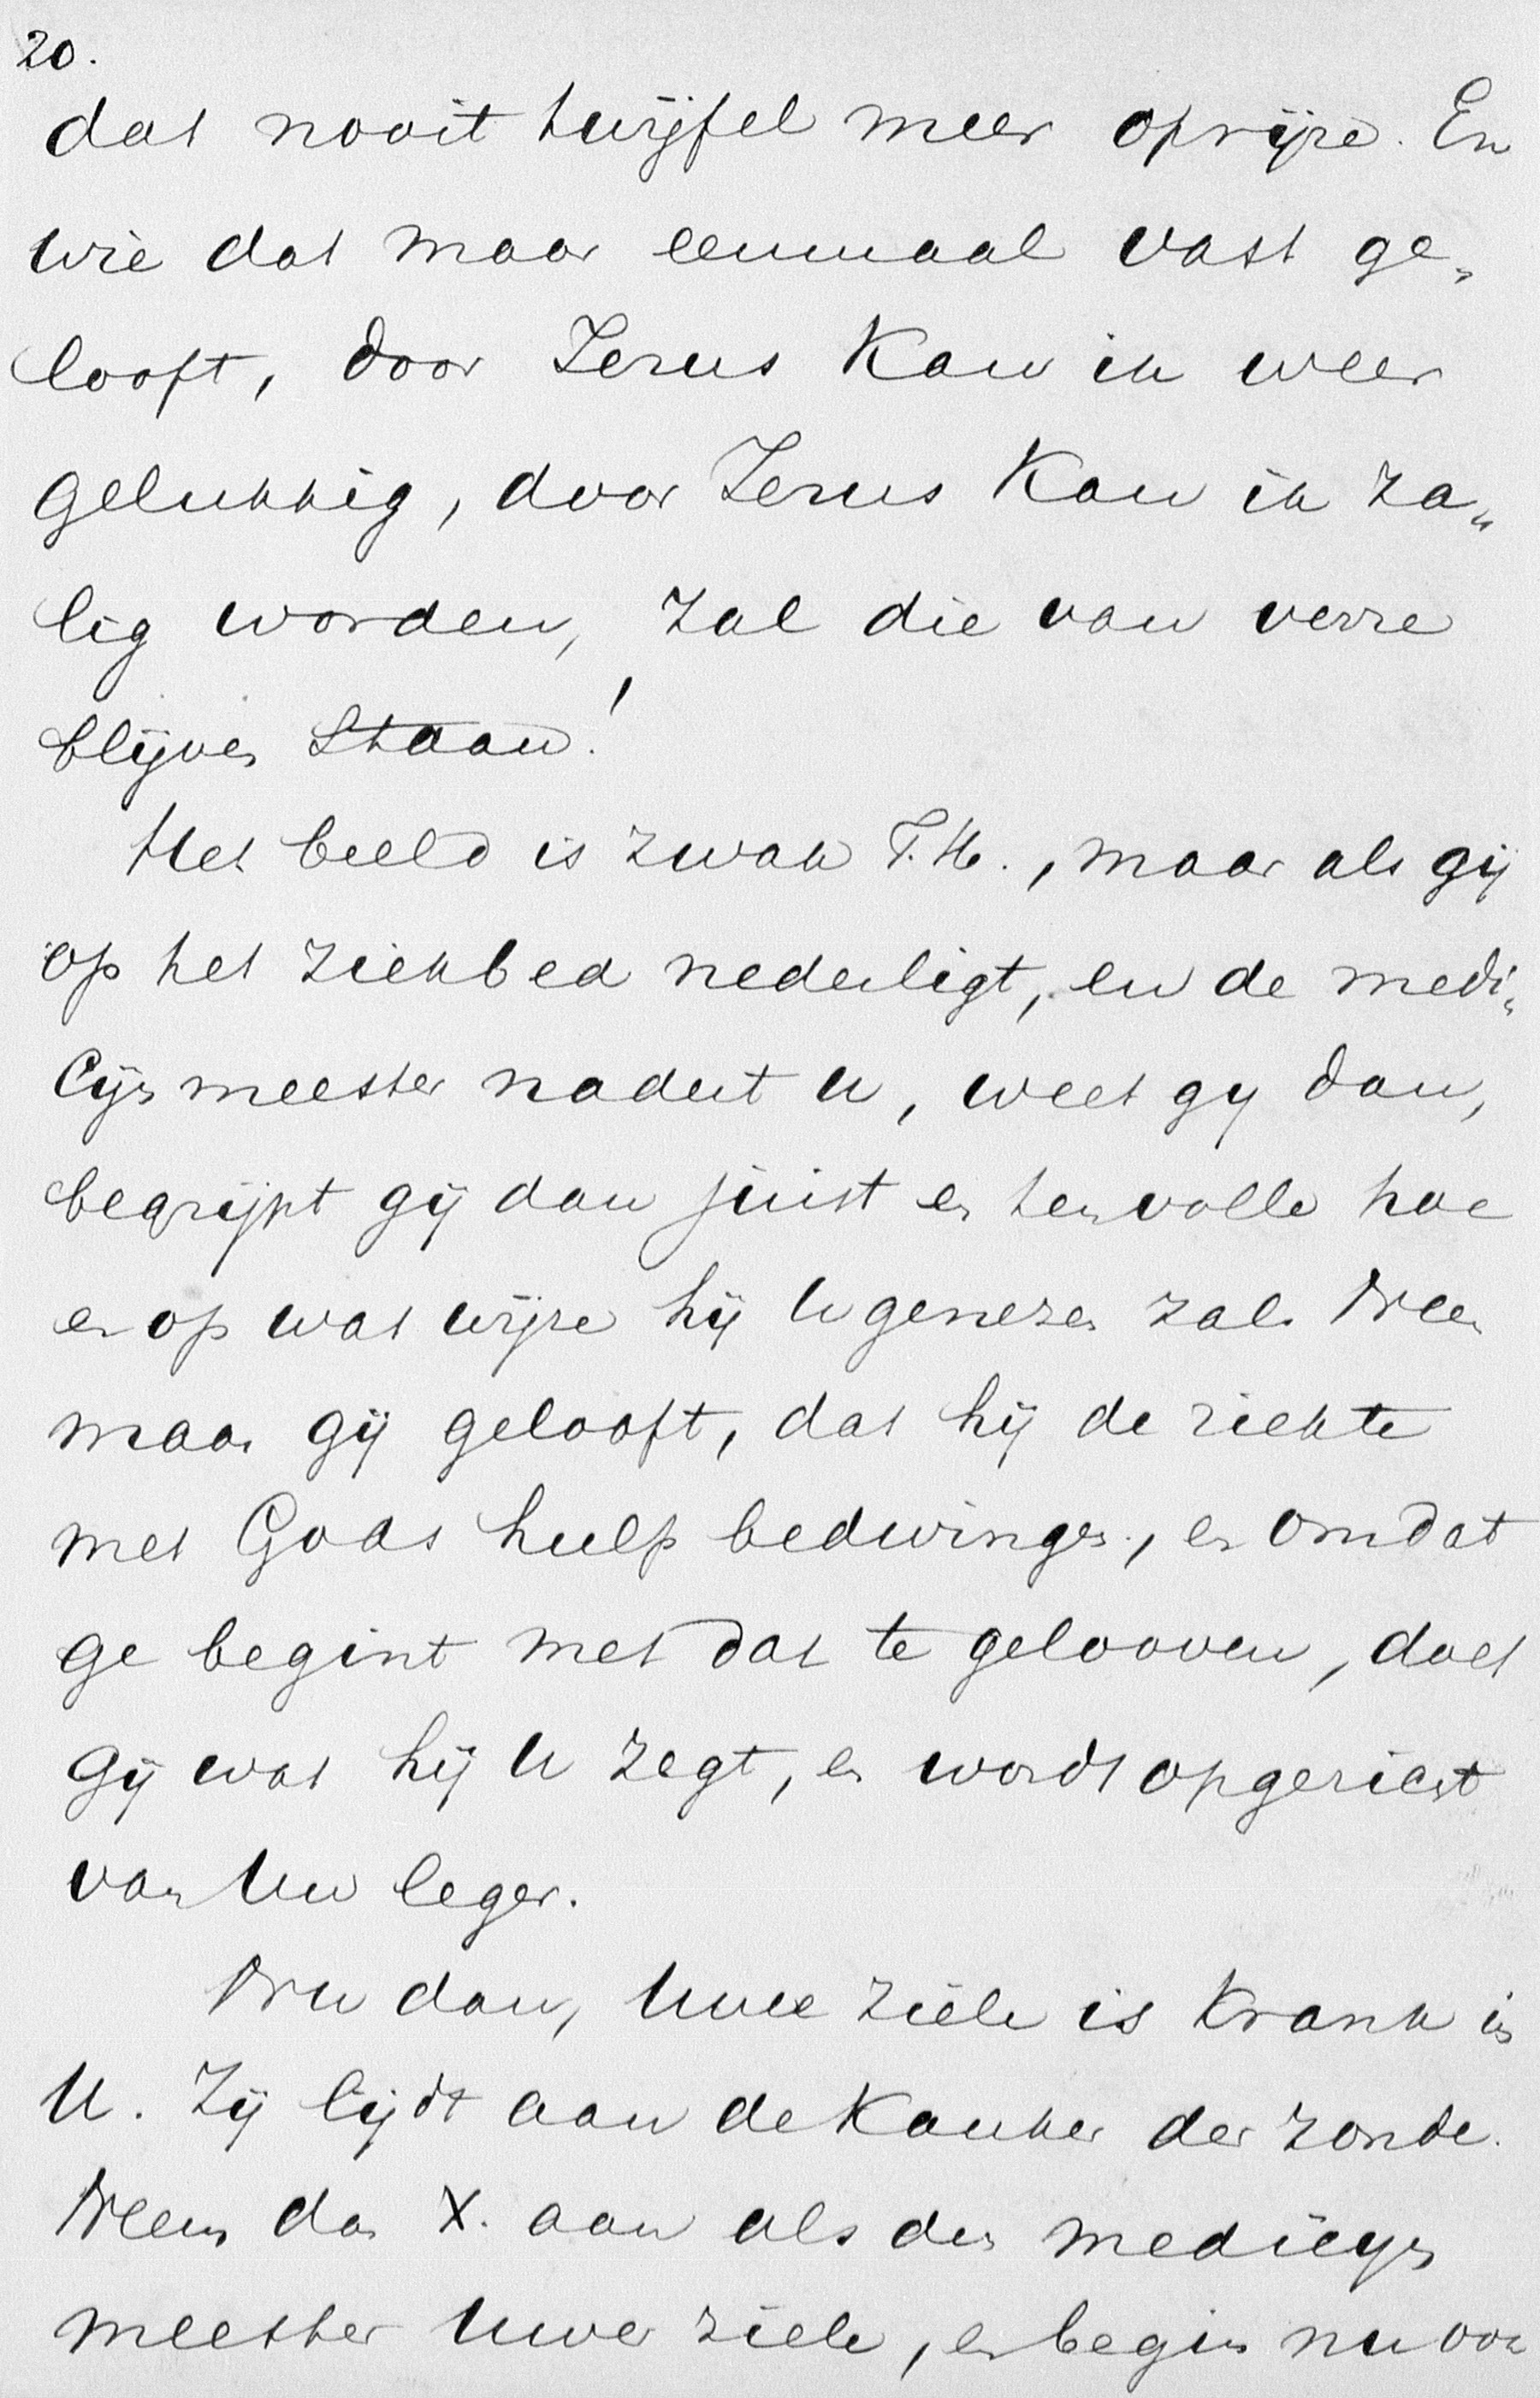 20.
dat nooit twijfel meer oprijze. En
wie dat maar eenmaal vast ge„
looft, door Jezus kan ik weer
gelukkig, door Jezus kan ik za„
lig worden, zal die van verre
blijven staan!
Het beeld is zwak T. H., maar als gij
op het ziekbed nederligt, en de medi„
cijnmeester nadert U, weet gy dan,
begrijpt gij dan juist en ten volle hoe
en op wat wijze hij U genezen zal. Neen
maar gij gelooft, dat hij de ziekte
met Gods hulp bedwingen, en omdat
ge begint met dat te gelooven, doet
gij wat hij U zegt, en wordt opgericht
van Uw leger.
Nu dan, Uwe ziele is krank in
U. Zij lijdt aan de kanker der zonde.
Neem dan X. aan als den medicijn
meester Uwer ziele, en begin nu ook